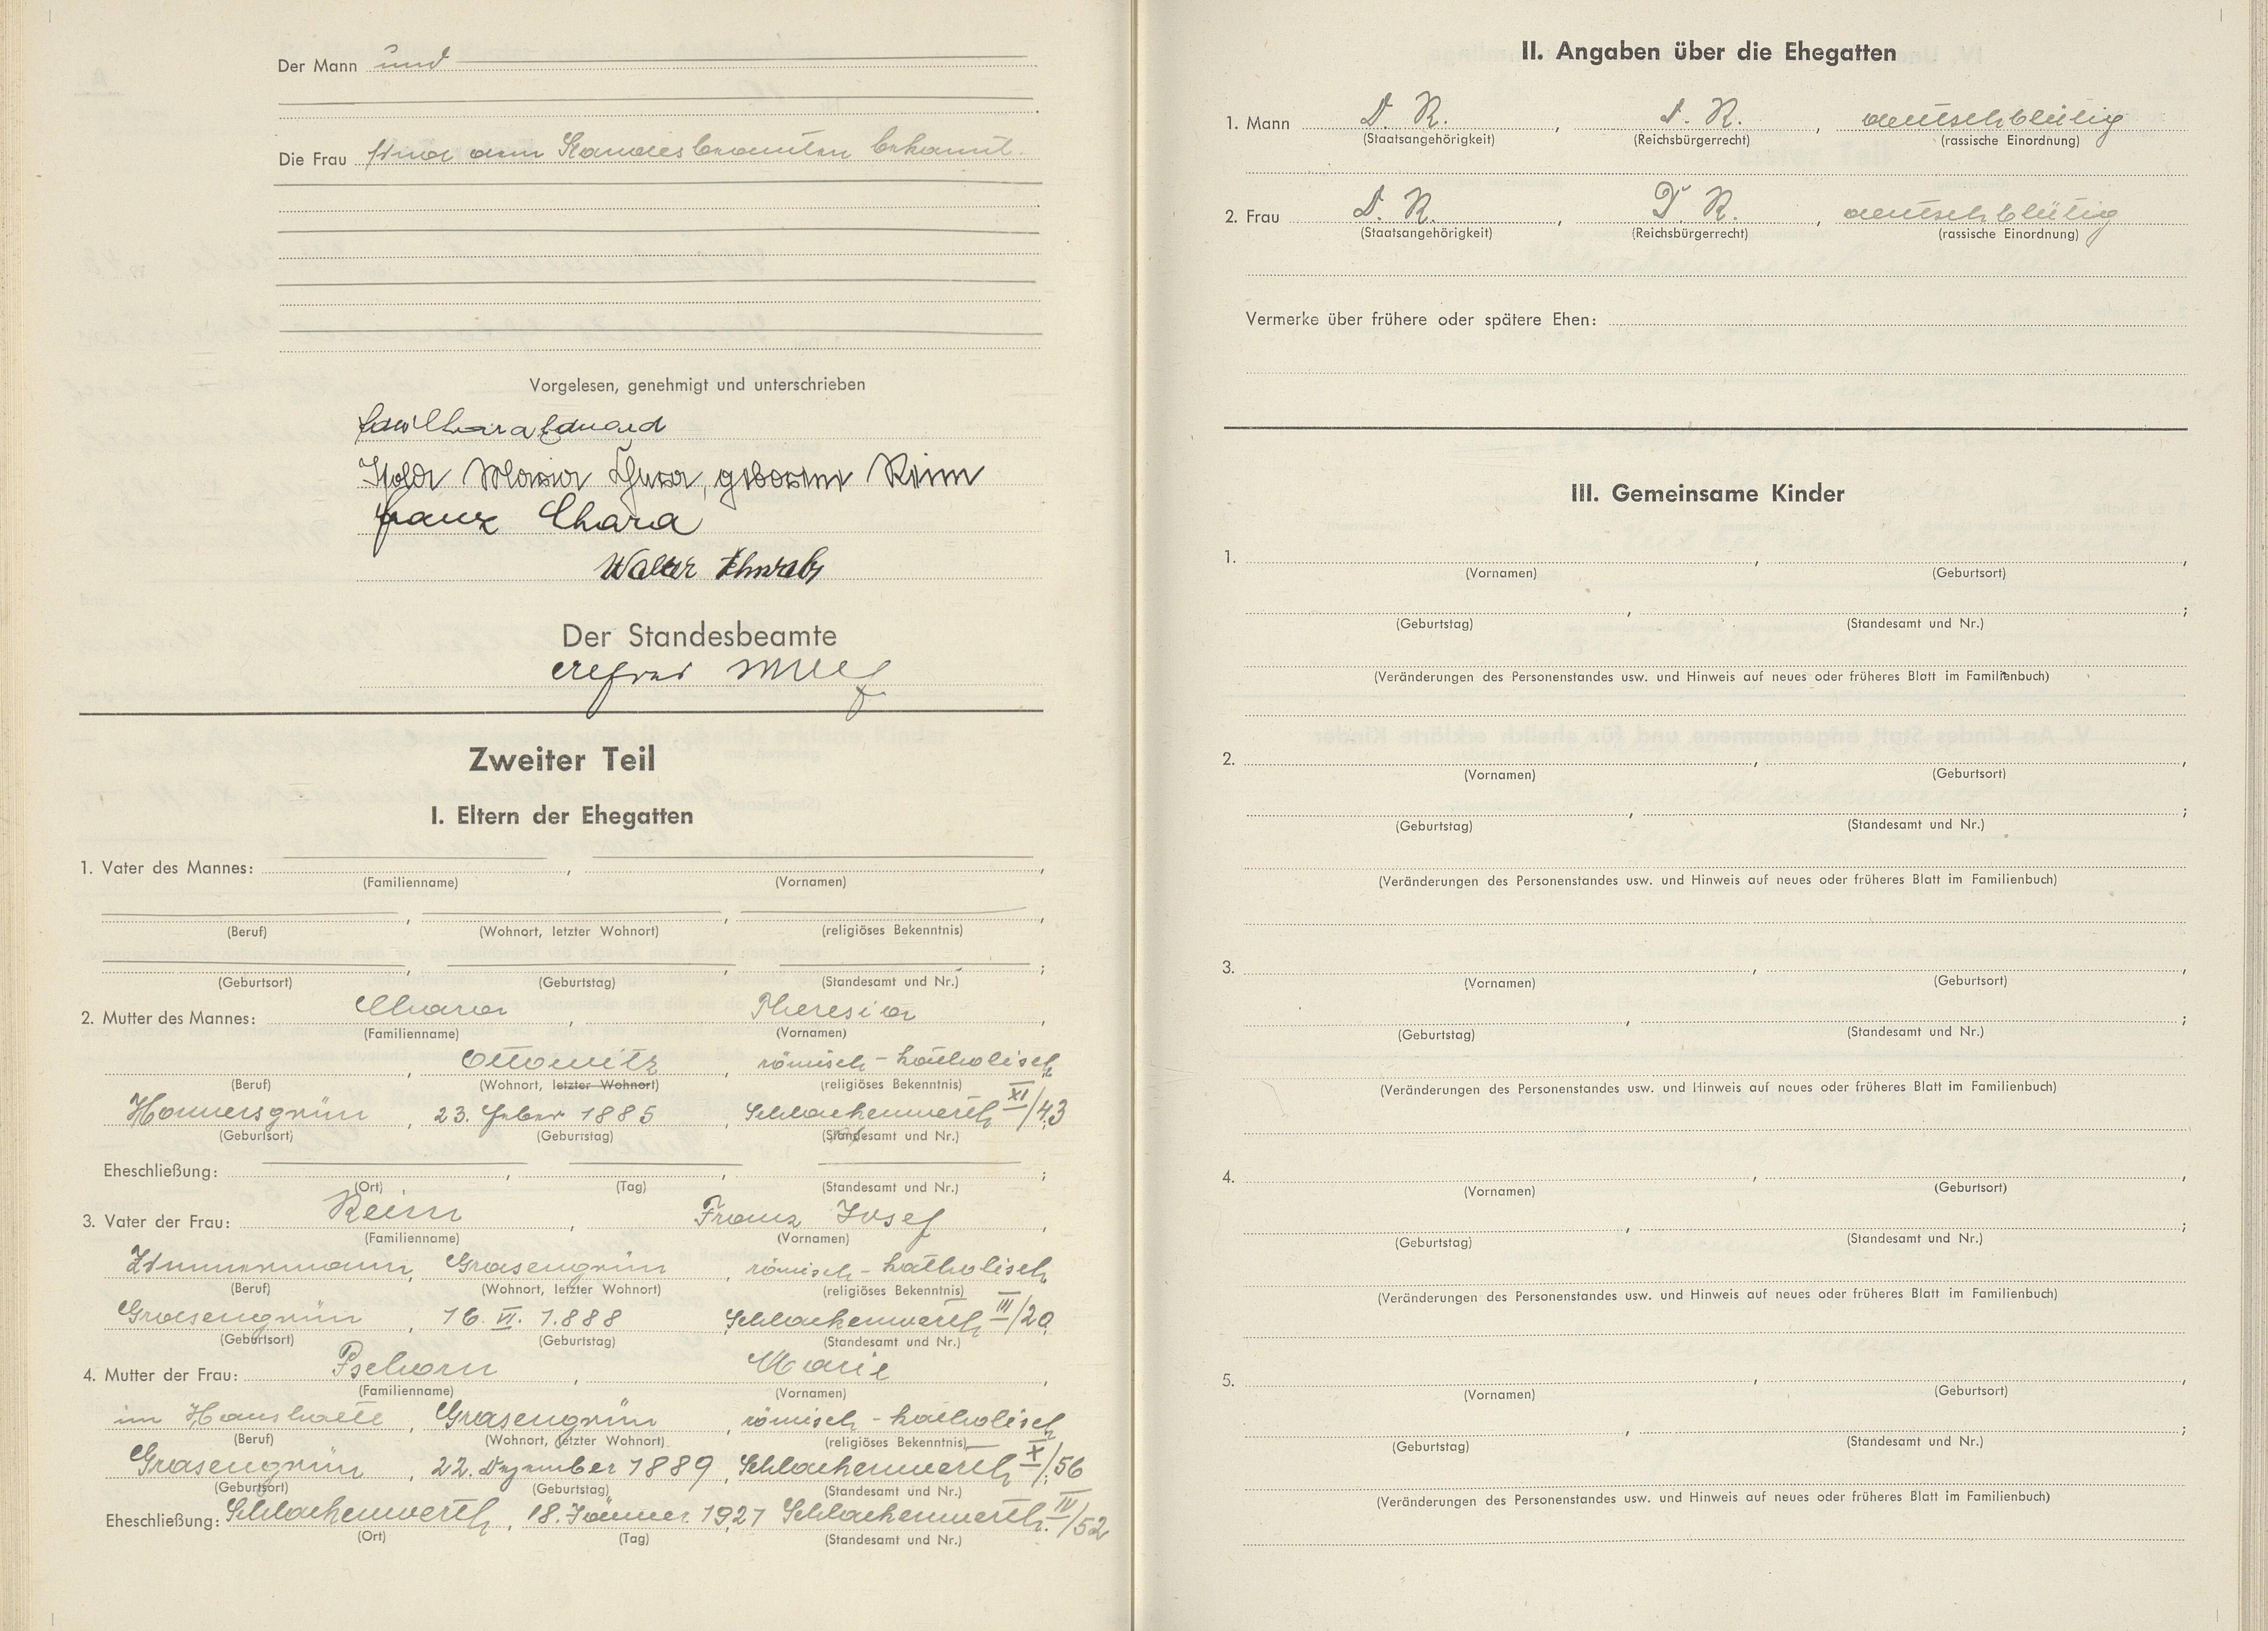 Der Mann und
Die Frau sind dem Standesbeamten bekannt.
Vorgelesen, genehmigt und unterschrieben
Chara Eduard
Isolda Maria Chara, geborene Reim
Franz Chara
Walter Schwab
Der Standesbeamte
Zweiter Teil
I. Eltern der Ehegatten
1. Vater des Mannes: , ,
(Familienname) (Vornamen)
, , ,
(Beruf) (Wohnort, letzter Wohnort) (religiöses Bekenntnis)
, , ;
(Geburtsort) (Geburtstag) (Standesamt und Nr.)
2. Mutter des Mannes: Chara , Theresia ,
(Familienname) (Vornamen)
, Ottowitz , römisch-katholisch
(Beruf) (Wohnort, letzter Wohnort) (religiöses Bekenntnis)
Honnersgrün , 23. Feber 1885 , Schlackenwerth XI/43
(Geburtsort) (Geburtstag) (Standesamt und Nr.)
Eheschließung: , , ;
(Ort) (Tag) (Standesamt und Nr.)
3. Vater der Frau: Reim , Franz Josef ,
(Familienname) (Vornamen)
Zimmermann, Grasengrün , römisch-katholisch
(Beruf) (Wohnort, letzter Wohnort) (religiöses Bekenntnis)
Grasengrün , 16. VI. 1888 , Schlackenwerth III/20
(Geburtsort) (Geburtstag) (Standesamt und Nr.)
4. Mutter der Frau: Pschorn , Marie ,
(Familienname) (Vornamen)
im Haushalte , Grasengrün , römisch-katholisch
(Beruf) (Wohnort, letzter Wohnort) (religiöses Bekenntnis)
Grasengrün , 22. Dezember 1889 , Schlackenwerth X/56
(Geburtsort) (Geburtstag) (Standesamt und Nr.)
Eheschließung: Schlackenwerth , 18. Jänner 1921 Schlackenwerth IV/52
(Ort) (Tag) (Standesamt und Nr.)
II. Angaben über die Ehegatten
1. Mann D. R. , D. R. , deutschblütig
(Staatsangehörigkeit) (Reichsbürgerrecht) (rassische Einordnung)
2. Frau D. R. , D. R. , deutschblütig
(Staatsangehörigkeit) (Reichsbürgerrecht) (rassische Einordnung)
Vermerke über frühere oder spätere Ehen:
III. Gemeinsame Kinder
1. , ,
(Vornamen) (Geburtsort)
, ;
(Geburtstag) (Standesamt und Nr.)
(Veränderungen des Personenstandes usw. und Hinweis auf neues oder früheres Blatt im Familienbuch)
2. , ,
(Vornamen) (Geburtsort)
, ;
(Geburtstag) (Standesamt und Nr.)
(Veränderungen des Personenstandes usw. und Hinweis auf neues oder früheres Blatt im Familienbuch)
3. , ,
(Vornamen) (Geburtsort)
, ;
(Geburtstag) (Standesamt und Nr.)
(Veränderungen des Personenstandes usw. und Hinweis auf neues oder früheres Blatt im Familienbuch)
4. , ,
(Vornamen) (Geburtsort)
, ;
(Geburtstag) (Standesamt und Nr.)
(Veränderungen des Personenstandes usw. und Hinweis auf neues oder früheres Blatt im Familienbuch)
5. , ,
(Vornamen) (Geburtsort)
, ;
(Geburtstag) (Standesamt und Nr.)
(Veränderungen des Personenstandes usw. und Hinweis auf neues oder früheres Blatt im Familienbuch)